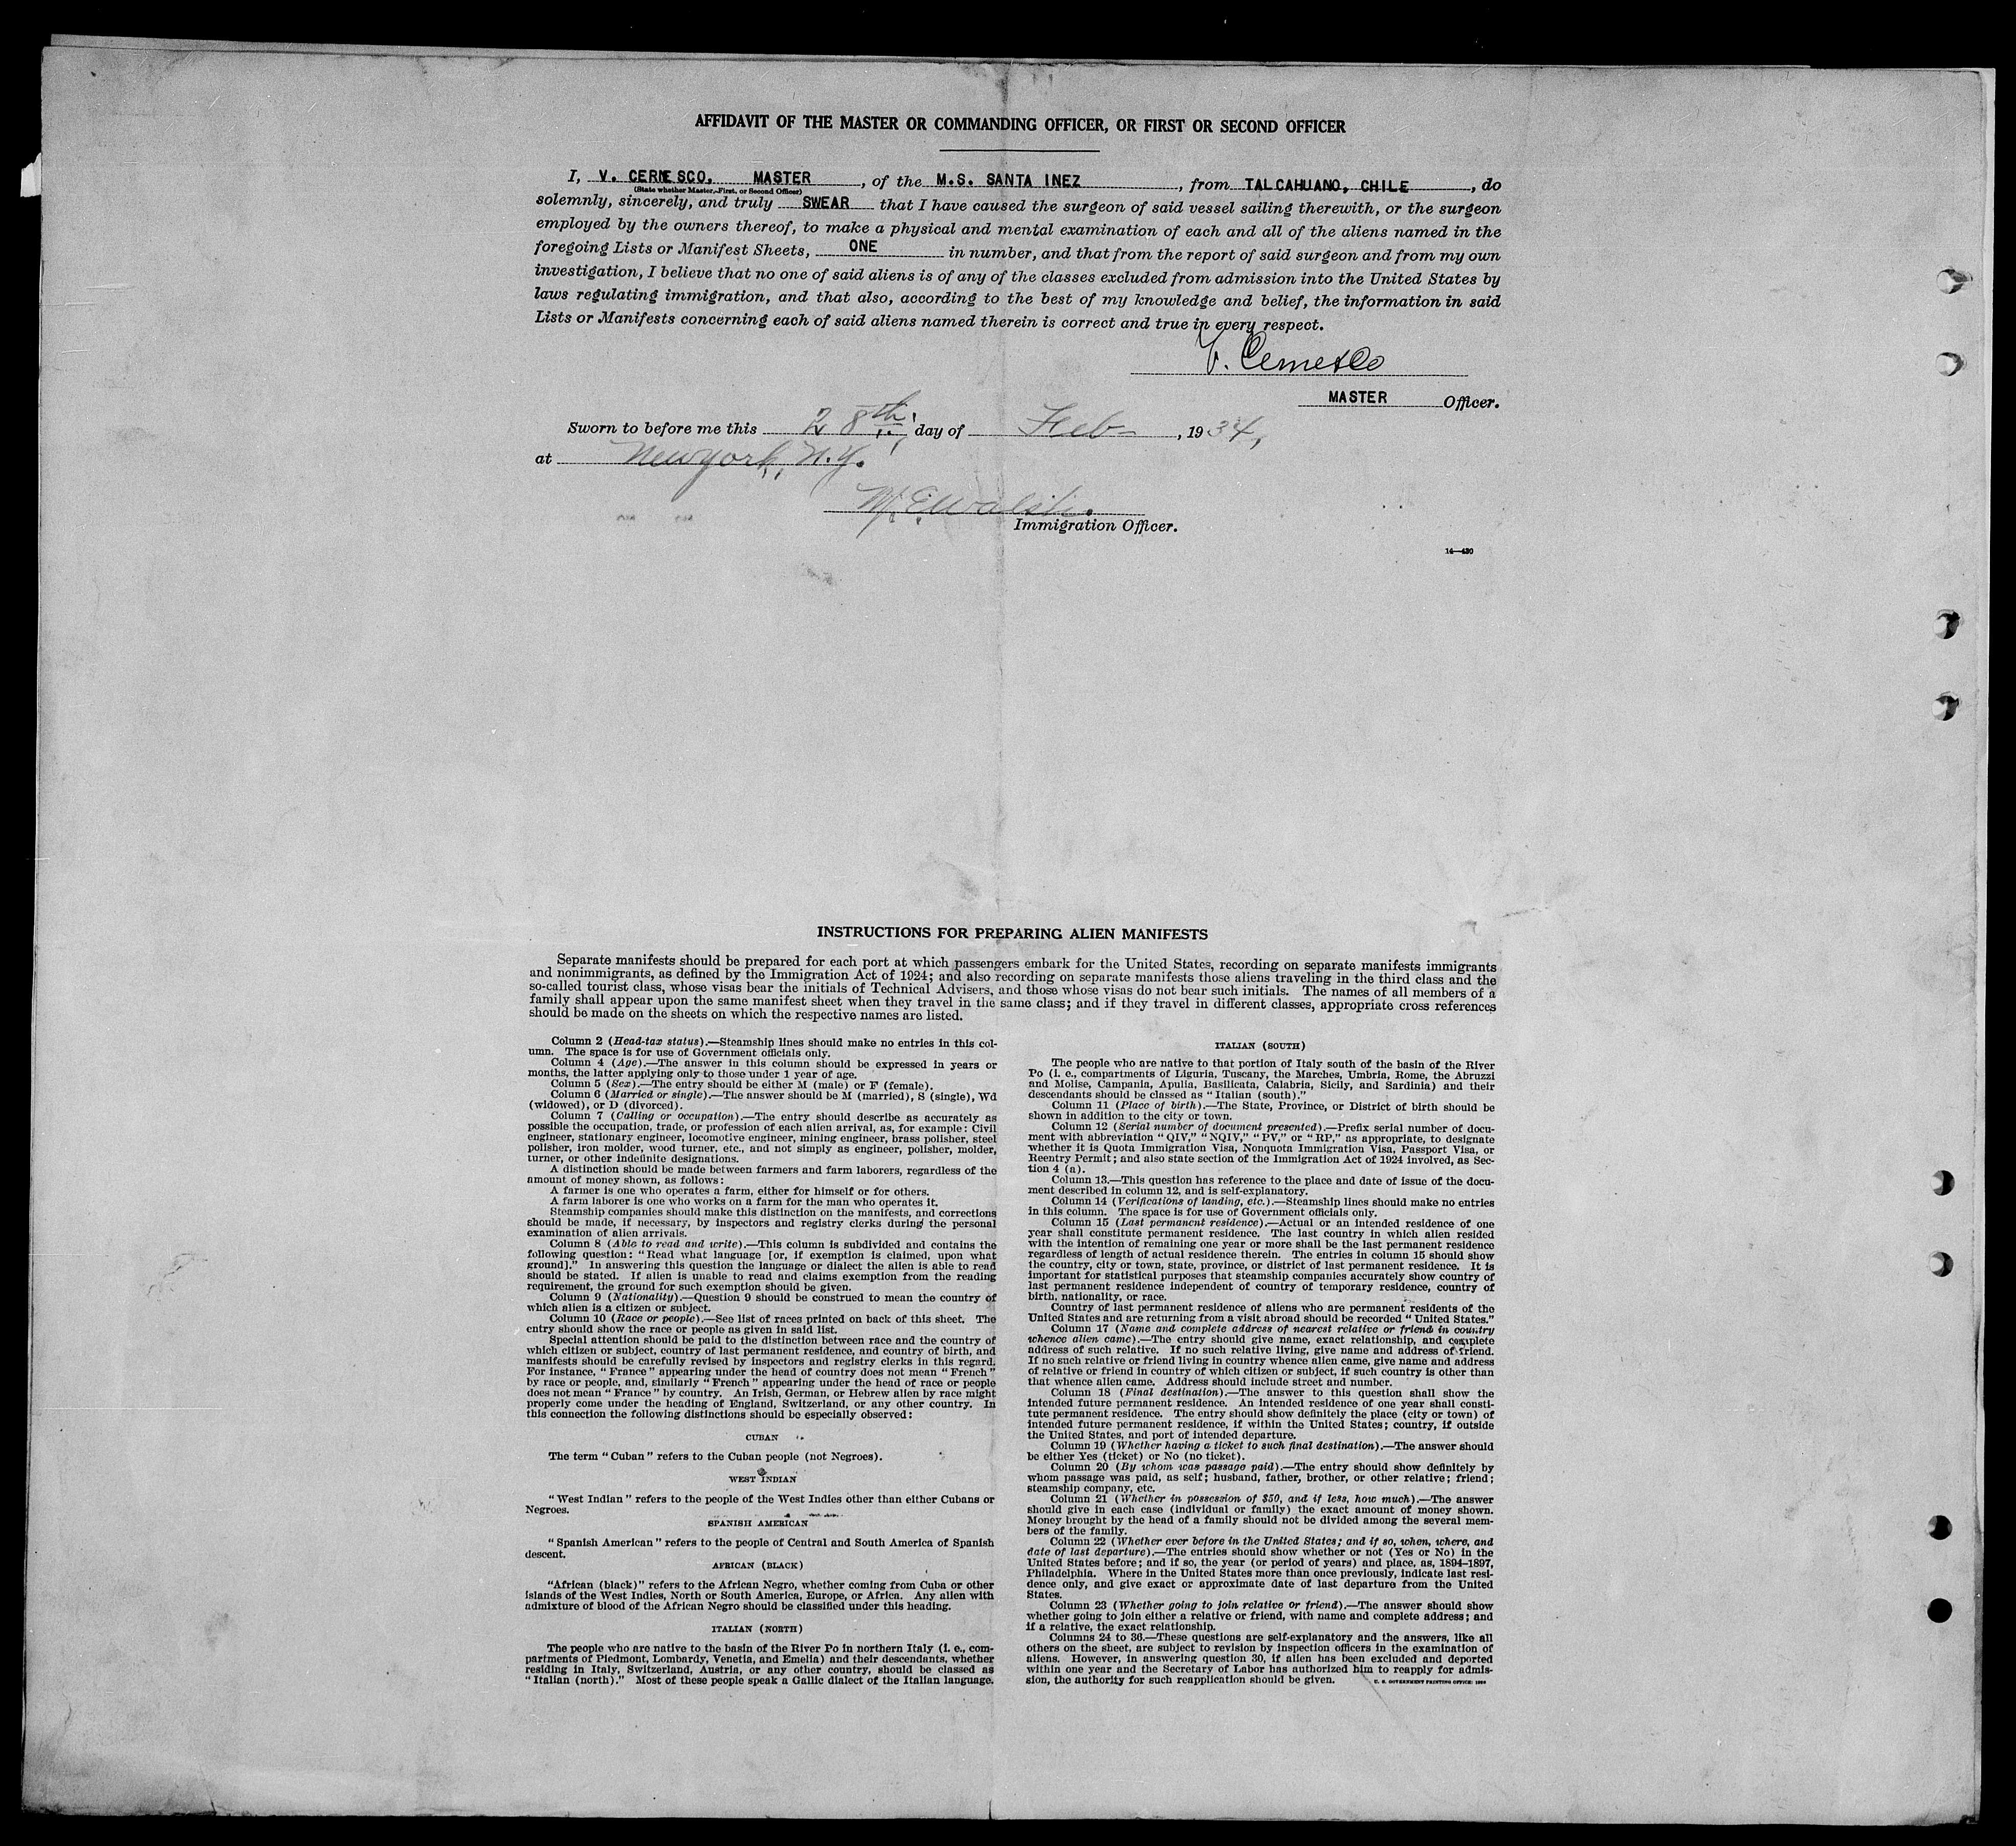 AFFIDAVIT OF THE MASTER OR COMMANDING OFFICER, OR FIRST OR SECOND OFFICER
I, V. CERNESCO, MASTER, of the M.S. SANTA INEZ, from TALCAHUANO, CHILE, do
(State whether Master, First, or Second Officer)
solemnly, sincerely, and truly SWEAR that I have caused the surgeon of said vessel sailing therewith, or the surgeon
employed by the owners thereof, to make a physical and mental examination of each and all of the aliens named in the
foregoing Lists or Manifest Sheets, ONE in number, and that from the report of said surgeon and from my own
investigation, I believe that no one of said aliens is of any of the classes excluded from admission into the United States by
laws regulating immigration, and that also, according to the best of my knowledge and belief, the information in said
Lists or Manifests concerning each of said aliens named therein is correct and true in every respect.
MASTER Officer.
Sworn to before me this 28th day of Feb-, 1934,
at New York, N.Y.
Immigration Officer.
14—430
INSTRUCTIONS FOR PREPARING ALIEN MANIFESTS
Separate manifests should be prepared for each port at which passengers embark for the United States, recording on separate manifests immigrants
and nonimmigrants, as defined by the Immigration Act of 1924; and also recording on separate manifests those aliens traveling in the third class and the
so-called tourist class, whose visas bear the initials of Technical Advisers, and those whose visas do not bear such initials. The names of all members of a
family shall appear upon the same manifest sheet when they travel in the same class; and if they travel in different classes, appropriate cross references
should be made on the sheets on which the respective names are listed.
Column 2 (Head-tax status).—Steamship lines should make no entries in this col-
umn. The space is for use of Government officials only.
Column 4 (Age).—The answer in this column should be expressed in years or
months, the latter applying only to those under 1 year of age.
Column 5 (Sex).—The entry should be either M (male) or F (female).
Column 6 (Married or single).—The answer should be M (married), S (single), Wd
(widowed), or D (divorced).
Column 7 (Calling or occupation).—The entry should describe as accurately as
possible the occupation, trade, or profession of each alien arrival, as, for example: Civil
engineer, stationary engineer, locomotive engineer, mining engineer, brass polisher, steel
polisher, iron molder, wood turner, etc., and not simply as engineer, polisher, molder,
turner, or other indefinite designations.
A distinction should be made between farmers and farm laborers, regardless of the
amount of money shown, as follows:
A farmer is one who operates a farm, either for himself or for others.
A farm laborer is one who works on a farm for the man who operates it.
Steamship companies should make this distinction on the manifests, and corrections
should be made, if necessary, by inspectors and registry clerks during the personal
examination of alien arrivals.
Column 8 (Able to read and write).—This column is subdivided and contains the
following question: "Read what language [or, if exemption is claimed, upon what
ground]." In answering this question the language or dialect the alien is able to read
should be stated. If alien is unable to read and claims exemption from the reading
requirement, the ground for such exemption should be given.
Column 9 (Nationality).—Question 9 should be construed to mean the country of
which alien is a citizen or subject.
Column 10 (Race or people).—See list of races printed on back of this sheet. The
entry should show the race or people as given in said list.
Special attention should be paid to the distinction between race and the country of
which citizen or subject, country of last permanent residence, and country of birth, and
manifests should be carefully revised by inspectors and registry clerks in this regard.
For instance, "France" appearing under the head of country does not mean "French"
by race or people, and, similarly "French" appearing under the head of race or people
does not mean "France" by country. An Irish, German, or Hebrew alien by race might
properly come under the heading of England, Switzerland, or any other country. In
this connection the following distinctions should be especially observed:
CUBAN
The term "Cuban" refers to the Cuban people (not Negroes).
WEST INDIAN
"West Indian" refers to the people of the West Indies other than either Cubans or
Negroes.
SPANISH AMERICAN
"Spanish American" refers to the people of Central and South America of Spanish
descent.
AFRICAN (BLACK)
"African (black)" refers to the African Negro, whether coming from Cuba or other
islands of the West Indies, North or South America, Europe, or Africa. Any alien with
admixture of blood of the African Negro should be classified under this heading.
ITALIAN (NORTH)
The people who are native to the basin of the River Po in northern Italy (i. e., com-
partments of Piedmont, Lombardy, Venetia, and Emelia) and their descendants, whether
residing in Italy, Switzerland, Austria, or any other country, should be classed as
"Italian (north)." Most of these people speak a Gallic dialect of the Italian language.
ITALIAN (SOUTH)
The people who are native to that portion of Italy south of the basin of the River
Po (i. e., compartments of Liguria, Tuscany, the Marches, Umbria, Rome, the Abruzzi
and Molise, Campania, Apulia, Basilicata, Calabria, Sicily, and Sardinia) and their
descendants should be classed as "Italian (south)."
Column 11 (Place of birth).—The State, Province, or District of birth should be
shown in addition to the city or town.
Column 12 (Serial number of document presented).—Prefix serial number of docu-
ment with abbreviation "QIV," "NQIV," "PV," or "RP," as appropriate, to designate
whether it is Quota Immigration Visa, Nonquota Immigration Visa, Passport Visa, or
Reentry Permit; and also state section of the Immigration Act of 1924 involved, as Sec-
tion 4 (a).
Column 13.—This question has reference to the place and date of issue of the docu-
ment described in column 12, and is self-explanatory.
Column 14 (Verifications of landing, etc.).—Steamship lines should make no entries
in this column. The space is for use of Government officials only.
Column 15 (Last permanent residence).—Actual or an intended residence of one
year shall constitute permanent residence. The last country in which alien resided
with the intention of remaining one year or more shall be the last permanent residence
regardless of length of actual residence therein. The entries in column 15 should show
the country, city or town, state, province, or district of last permanent residence. It is
important for statistical purposes that steamship companies accurately show country of
last permanent residence independent of country of temporary residence, country of
birth, nationality, or race.
Country of last permanent residence of aliens who are permanent residents of the
United States and are returning from a visit abroad should be recorded "United States."
Column 17 (Name and complete address of nearest relative or friend in country
whence alien came).—The entry should give name, exact relationship, and complete
address of such relative. If no such relative living, give name and address of friend.
If no such relative or friend living in country whence alien came, give name and address
of relative or friend in country of which citizen or subject, if such country is other than
that whence alien came. Address should include street and number.
Column 18 (Final destination).—The answer to this question shall show the
intended future permanent residence. An intended residence of one year shall consti-
tute permanent residence. The entry should show definitely the place (city or town) of
intended future permanent residence, if within the United States; country, if outside
the United States, and port of intended departure.
Column 19 (Whether having a ticket to such final destination).—The answer should
be either Yes (ticket) or No (no ticket).
Column 20 (By whom was passage paid).—The entry should show definitely by
whom passage was paid, as self; husband, father, brother, or other relative; friend;
steamship company, etc.
Column 21 (Whether in possession of $50, and if less, how much).—The answer
should give in each case (individual or family) the exact amount of money shown.
Money brought by the head of a family should not be divided among the several mem-
bers of the family.
Column 22 (Whether ever before in the United States; and if so, when, where, and
date of last departure).—The entries should show whether or not (Yes or No) in the
United States before; and if so, the year (or period of years) and place, as, 1894-1897,
Philadelphia. Where in the United States more than once previously, indicate last resi-
dence only, and give exact or approximate date of last departure from the United
States.
Column 23 (Whether going to join relative or friend).—The answer should show
whether going to join either a relative or friend, with name and complete address; and
if a relative, the exact relationship.
Columns 24 to 36.—These questions are self-explanatory and the answers, like all
others on the sheet, are subject to revision by inspection officers in the examination of
aliens. However, in answering question 30, if alien has been excluded and deported
within one year and the Secretary of Labor has authorized him to reapply for admis-
sion, the authority for such reapplication should be given.
U. S. GOVERNMENT PRINTING OFFICE: